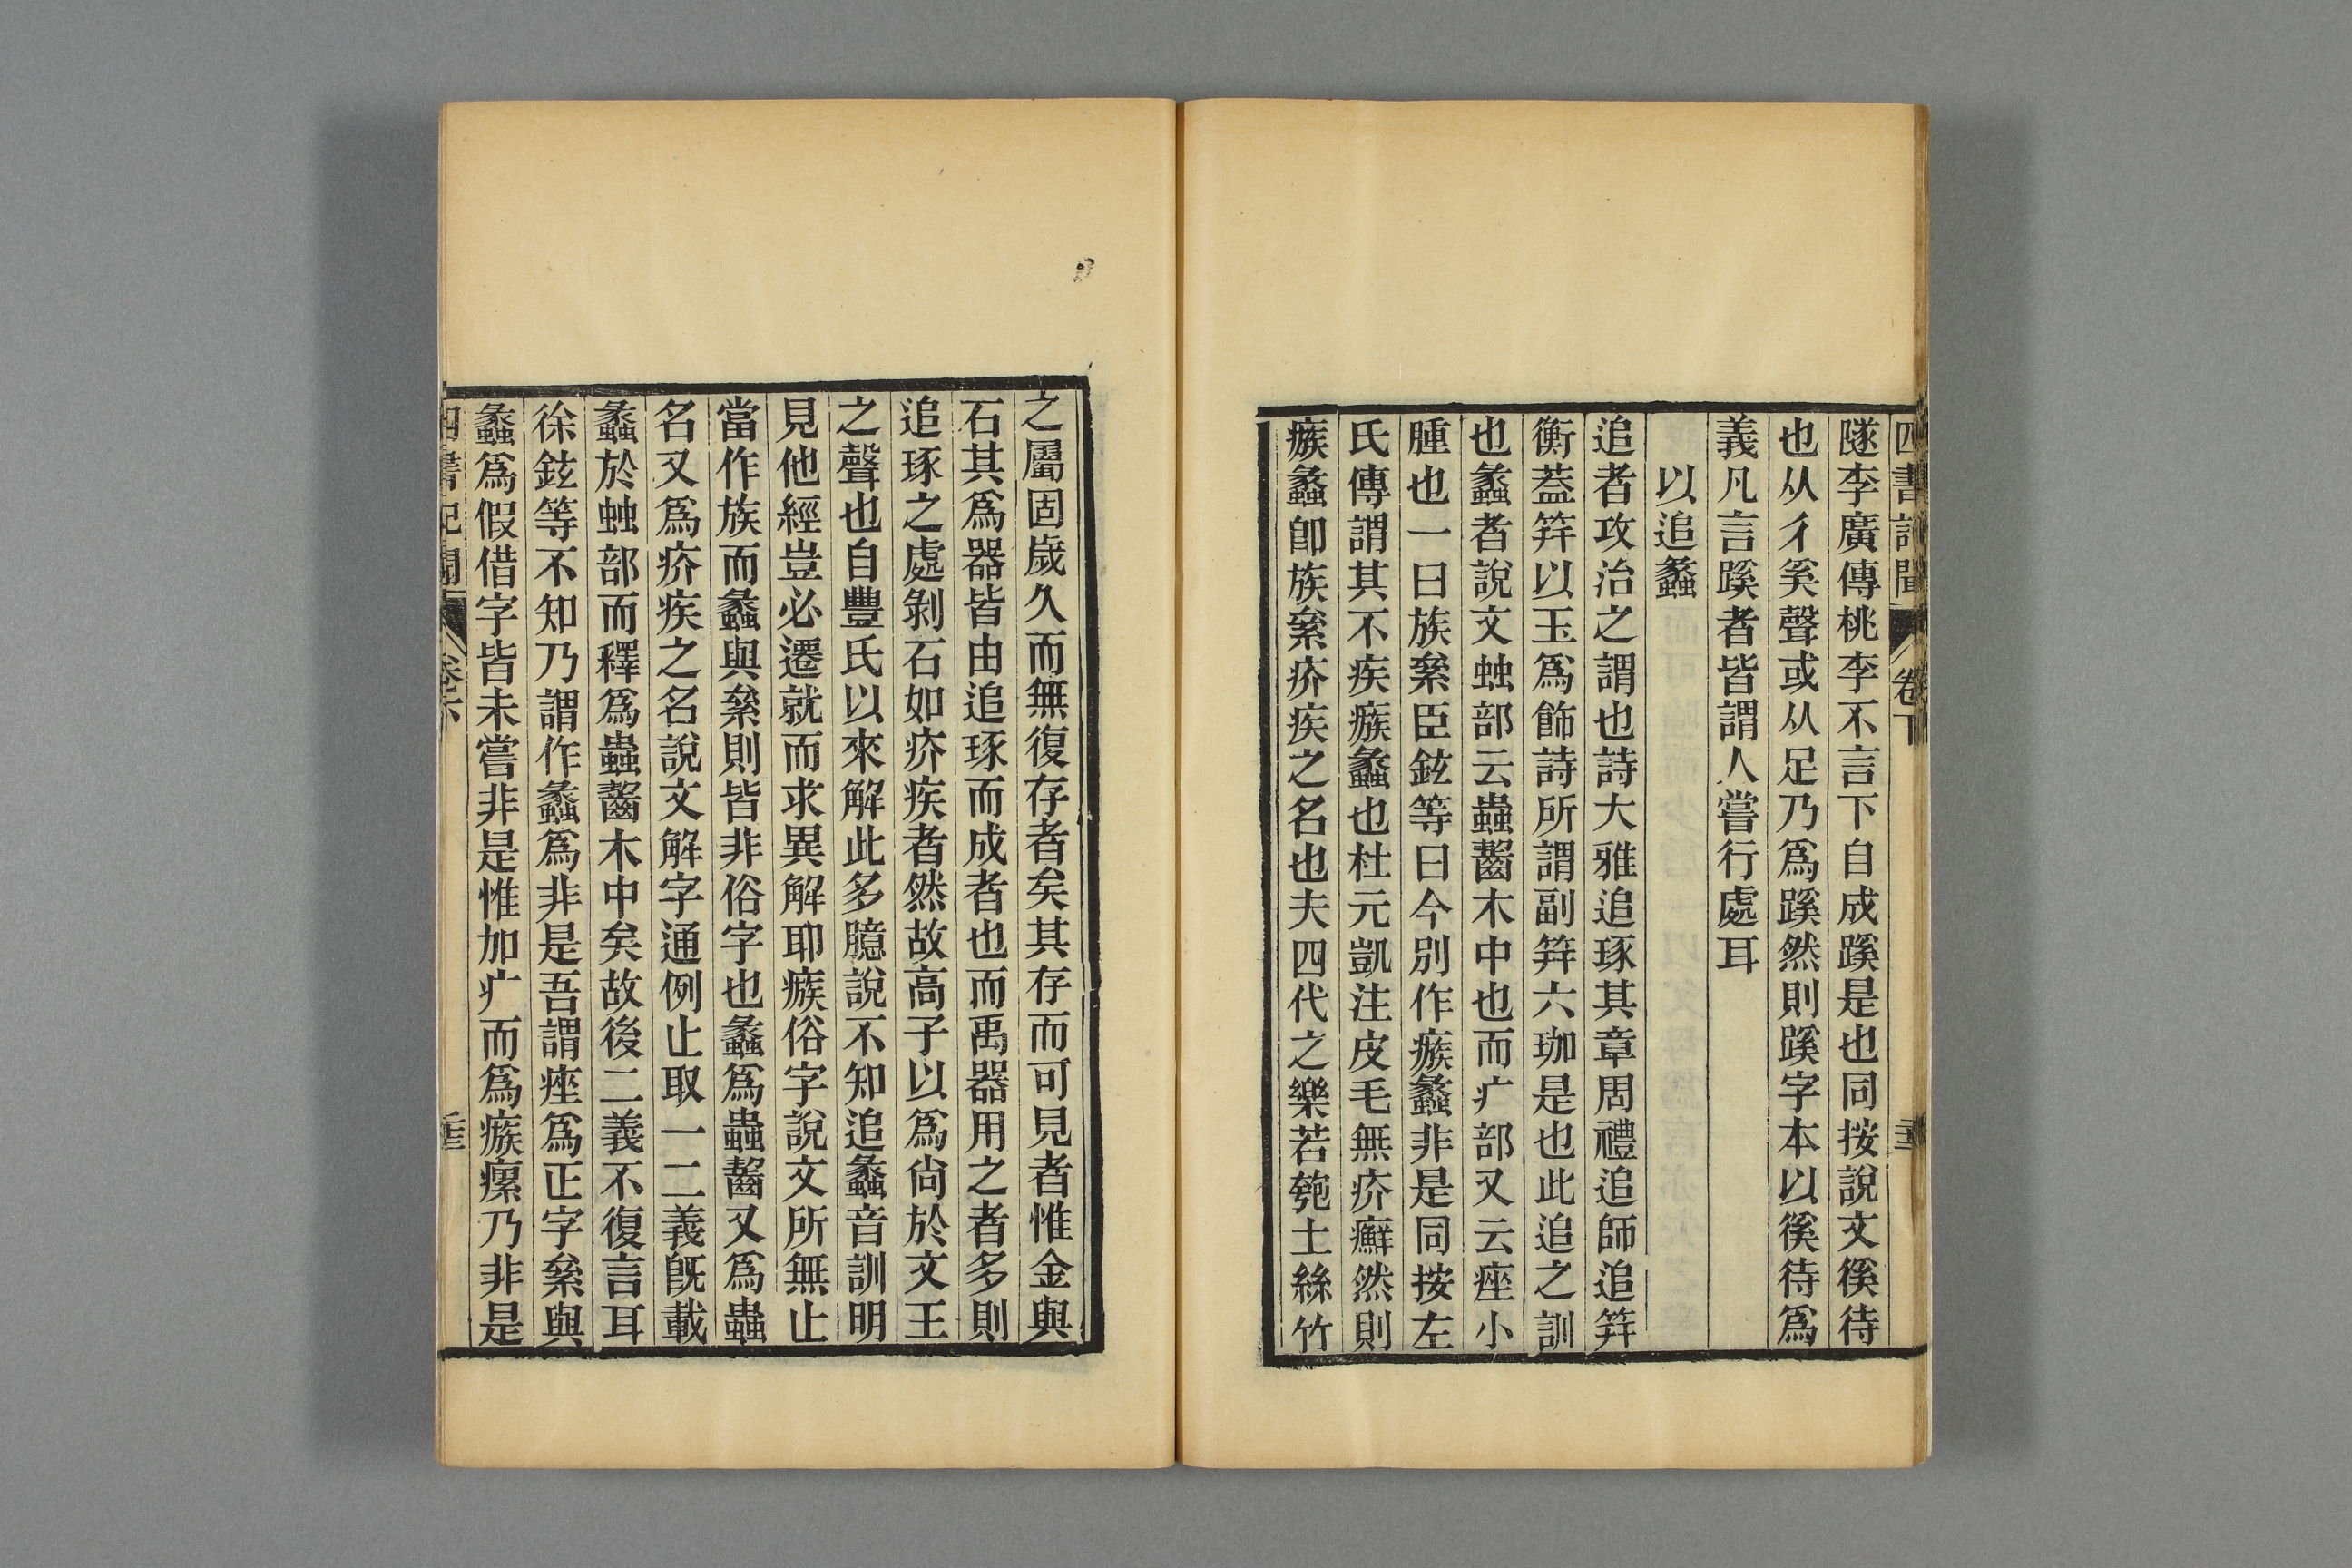 四書記聞 卷下
隧李廣傳桃李不言下自成蹊是也同按說文徯待
也从彳奚聲或从足乃爲蹊然則蹊字本以徯待爲
義凡言蹊者皆謂人嘗行處耳
以追蠡
追者攻治之謂也詩大雅追琢其章周禮追師追笄
衡蓋笄以玉爲飾詩所謂副笄六珈是也此追之訓
也蠡者說文䖵部云蟲齧木中也而疒部又云痤小
腫也一曰族絫臣鉉等曰今別作瘯蠡非是同按左
氏傳謂其不疾瘯蠡也杜元凱注皮毛無疥癬然則
瘯蠡卽族絫疥疾之名也夫四代之樂若匏土絲竹
之屬固歲久而無復存者矣其存而可見者惟金與
石其爲器皆由追琢而成者也而禹器用之者多則
追琢之處剝石如疥疾者然故高子以爲尙於文王
之聲也自豐氏以來解此多臆說不知追蠡音訓明
見他經豈必遷就而求異解耶瘯俗字說文所無止
當作族而蠡與絫則皆非俗字也蠡爲蟲齧又爲蟲
名又爲疥疾之名說文解字通例止取一二義旣載
蠡於䖵部而釋爲蟲齧木中矣故後二義不復言耳
徐鉉等不知乃謂作蠡爲非是吾謂痤爲正字絫與
蠡爲假借字皆未嘗非是惟加疒而爲瘯瘰乃非是